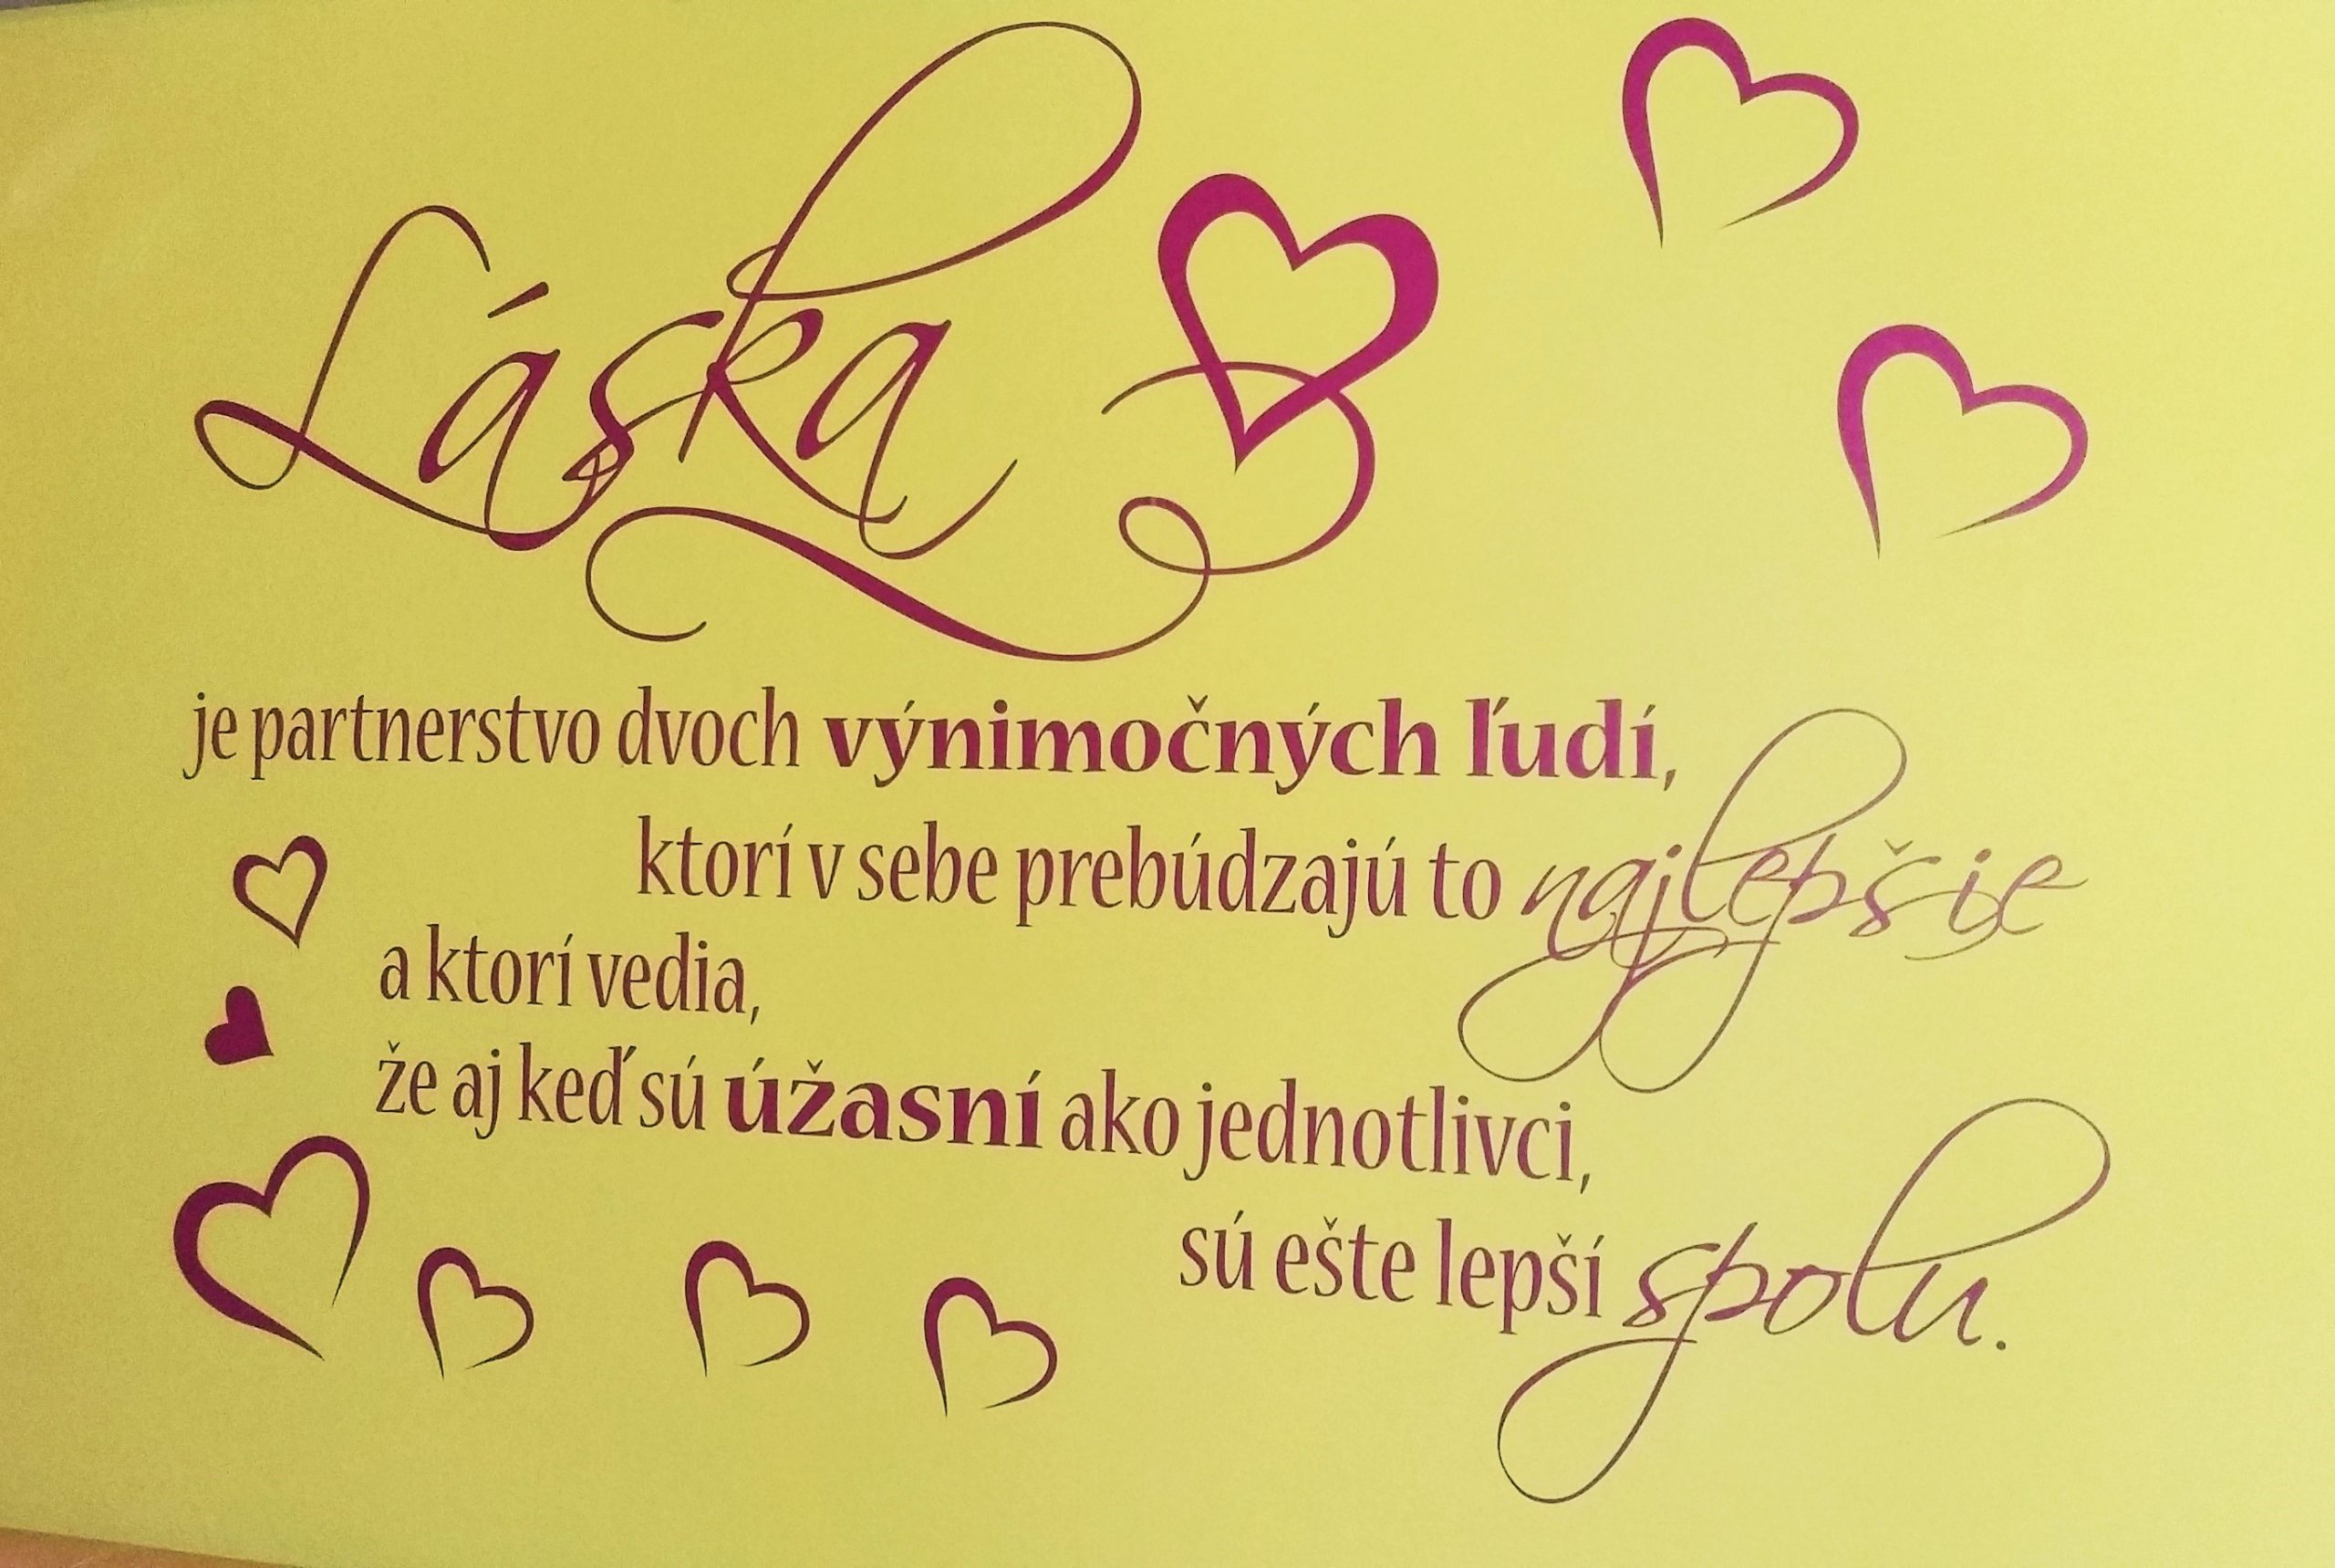 Láska
je partnerstvo dvoch výnimočných ľudí,
ktorí v sebe prebúdzajú to najlepšie
a ktorí vedia,
že aj keď sú úžasní ako jednotlivci,
sú ešte lepší spolu.